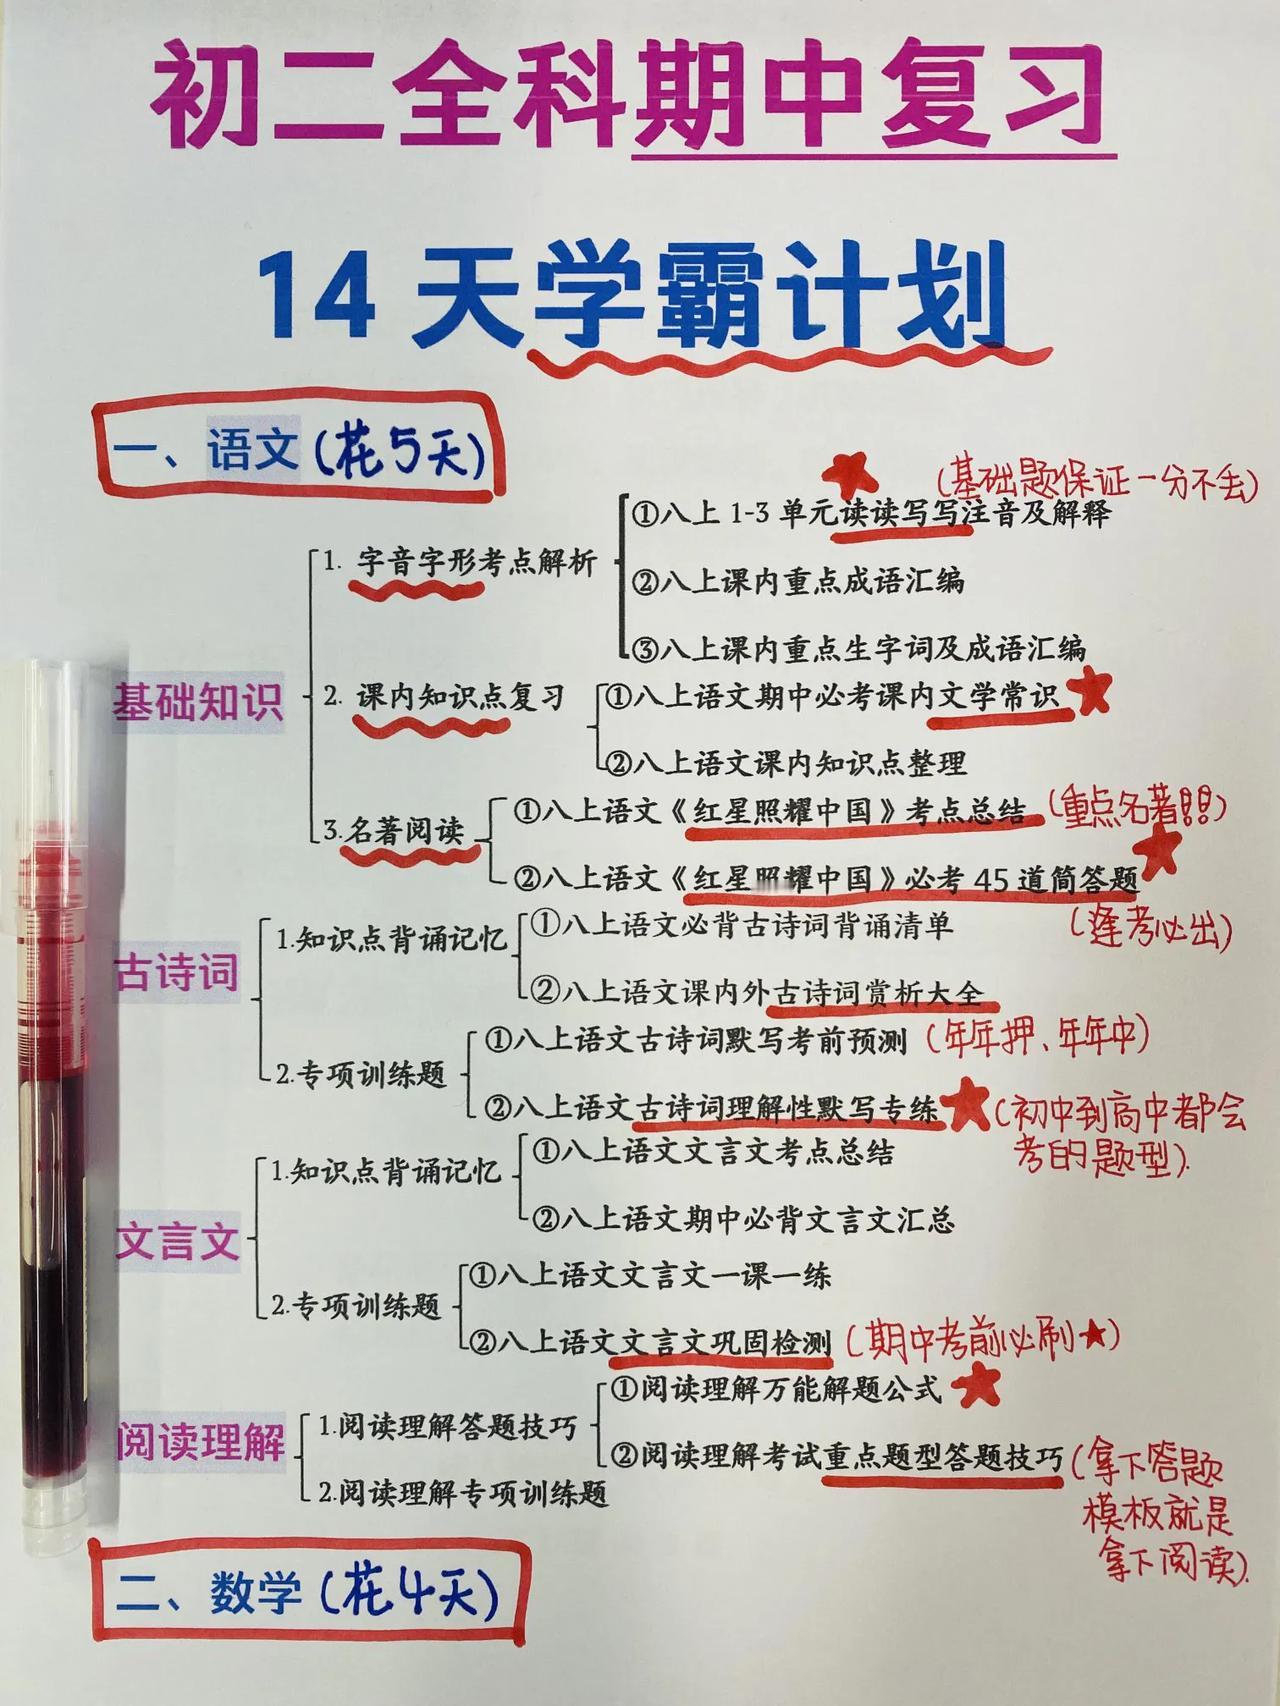 初二全科期中复习
14天学霸计划
一、语文(花5天)
(基础题保证一分不丢)
基础知识
1. 字音字形考点解析
①八上1-3单元读读写写注音及解释
②八上课内重点成语汇编
③八上课内重点生字词及成语汇编
2. 课内知识点复习
①八上语文期中必考课内文学常识
②八上语文课内知识点整理
3.名著阅读
①八上语文《红星照耀中国》考点总结(重点名著!!)
②八上语文《红星照耀中国》必考45道简答题
(逢考必出)
古诗词
1.知识点背诵记忆
①八上语文必背古诗词背诵清单
②八上语文课内外古诗词赏析大全
2.专项训练题
①八上语文古诗词默写考前预测(年年押、年年中)
②八上语文古诗词理解性默写专练(初中到高中都会
考的题型).
文言文
1.知识点背诵记忆
①八上语文文言文考点总结
②八上语文期中必背文言文汇总
2.专项训练题
①八上语文文言文一课一练
②八上语文文言文巩固检测(期中考前必刷★)
阅读理解
1.阅读理解答题技巧
①阅读理解万能解题公式
②阅读理解考试重点题型答题技巧(拿下答题
模板就是
拿下阅读).
2.阅读理解专项训练题
二、数学(花4天)